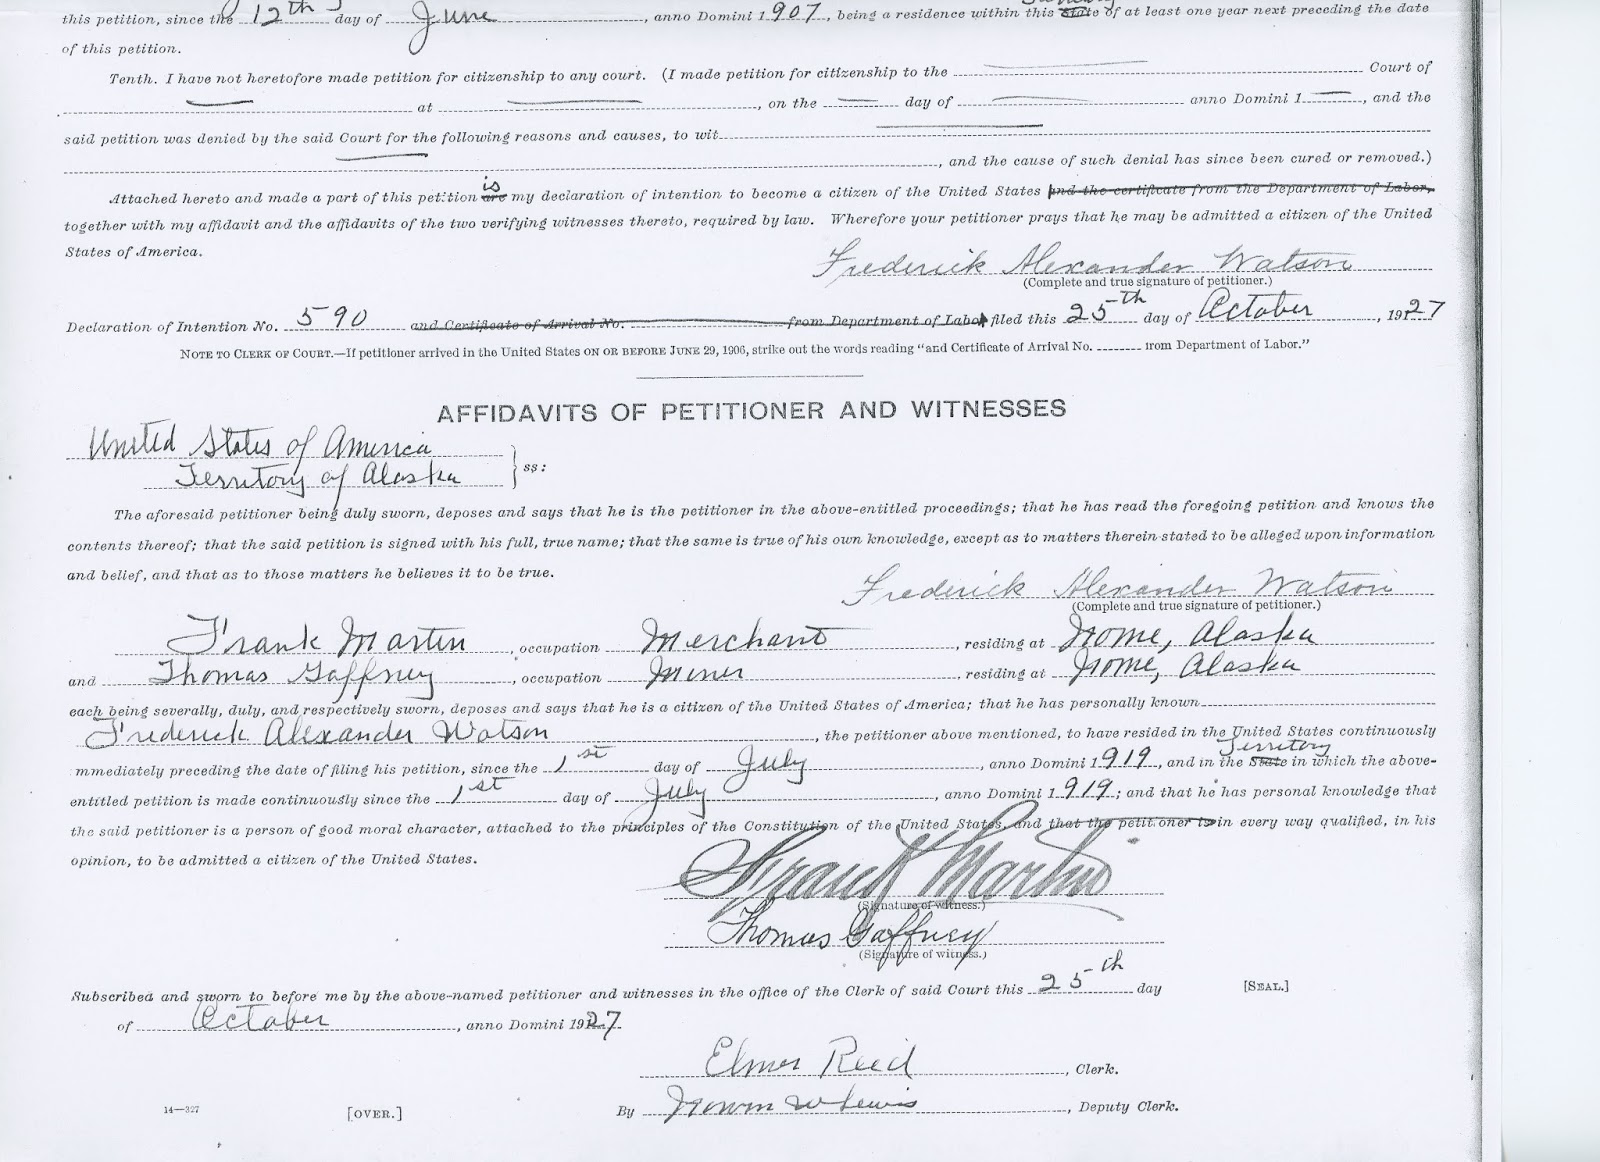 this petition, since the 12th day of June, anno Domini 1907, being a residence within this State of at least one year next preceding the date
of this petition.
Tenth. I have not heretofore made petition for citizenship to any court. (I made petition for citizenship to the Court of
at , on the day of anno Domini 1 , and the
said petition was denied by the said Court for the following reasons and causes, to wit
, and the cause of such denial has since been cured or removed.)
is
Attached hereto and made a part of this petition are my declaration of intention to become a citizen of the United States and the certificate from the Department of Labor,
together with my affidavit and the affidavits of the two verifying witnesses thereto, required by law. Wherefore your petitioner prays that he may be admitted a citizen of the United
States of America.
Frederick Alexander Watson
(Complete and true signature of petitioner.)
Declaration of Intention No. 590 and Certificate of Arrival No. from Department of Labor filed this 25th day of October, 1927
NOTE TO CLERK OF COURT.—If petitioner arrived in the United States ON OR BEFORE JUNE 29, 1906, strike out the words reading "and Certificate of Arrival No. from Department of Labor."
AFFIDAVITS OF PETITIONER AND WITNESSES
United States of America
Territory of Alaska } ss:
The aforesaid petitioner being duly sworn, deposes and says that he is the petitioner in the above-entitled proceedings; that he has read the foregoing petition and knows the
contents thereof; that the said petition is signed with his full, true name; that the same is true of his own knowledge, except as to matters therein stated to be alleged upon information
and belief, and that as to those matters he believes it to be true.
Frederick Alexander Watson
(Complete and true signature of petitioner.)
Frank Martin, occupation Merchant, residing at Nome, Alaska
and Thomas Gaffney, occupation Miner, residing at Nome, Alaska
each being severally, duly, and respectively sworn, deposes and says that he is a citizen of the United States of America; that he has personally known
Frederick Alexander Watson, the petitioner above mentioned, to have resided in the United States continuously
Territory
immediately preceding the date of filing his petition, since the 1st day of July, anno Domini 1919, and in the State in which the above-
entitled petition is made continuously since the 1st day of July, anno Domini 1919; and that he has personal knowledge that
the said petitioner is a person of good moral character, attached to the principles of the Constitution of the United States, and that the petitioner is in every way qualified, in his
opinion, to be admitted a citizen of the United States.
Frank Martin
(Signature of witness.)
Thomas Gaffney
(Signature of witness.)
Subscribed and sworn to before me by the above-named petitioner and witnesses in the office of the Clerk of said Court this 25th day [SEAL.]
of October, anno Domini 1927
Elmer Reed, Clerk.
14—327 [OVER.] By W Lewis, Deputy Clerk.